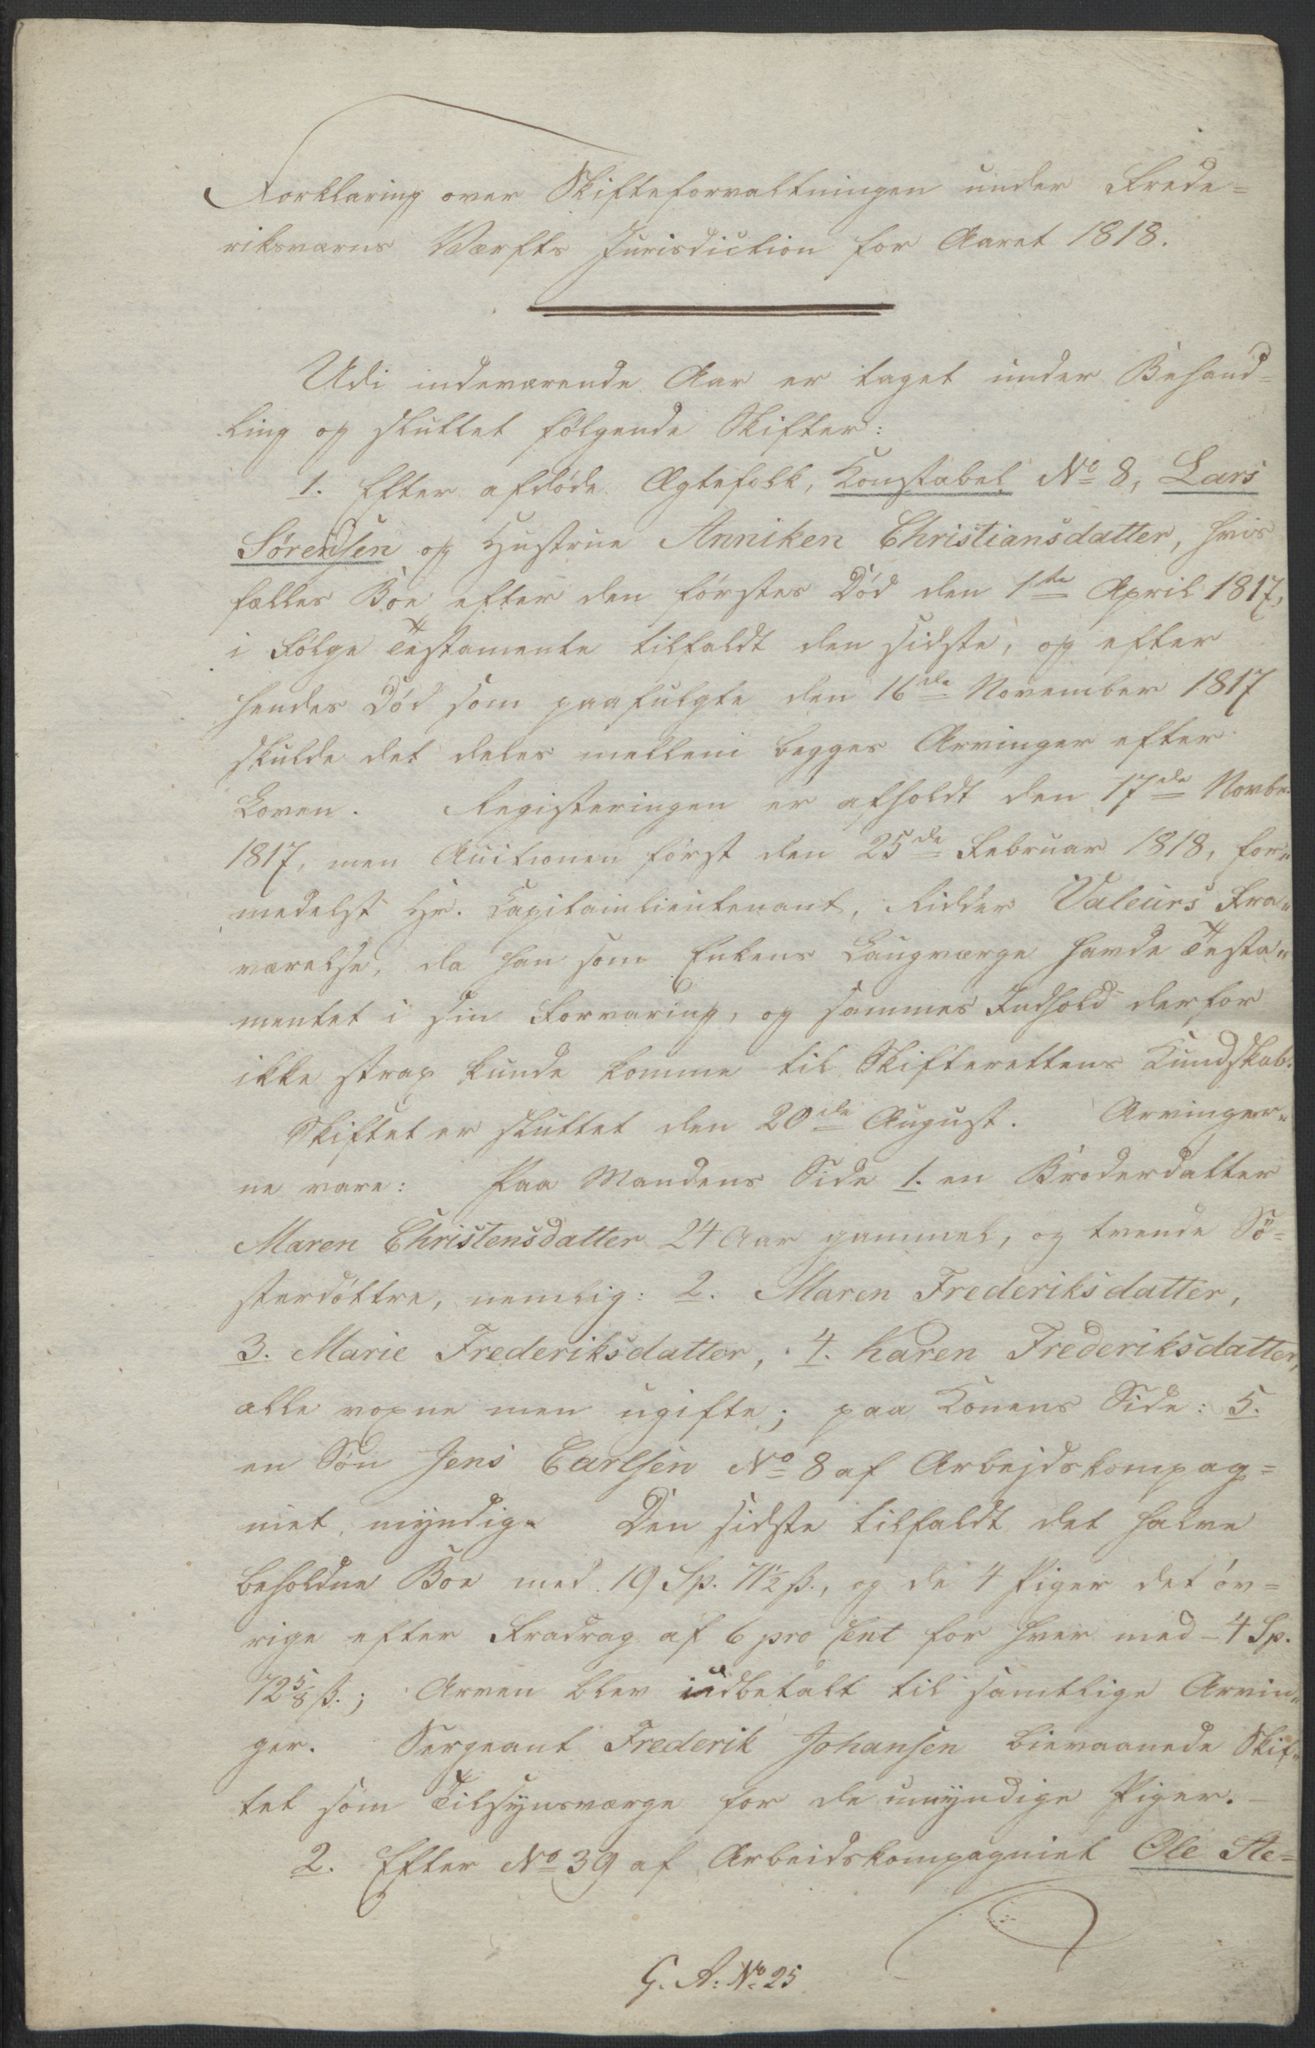 Forklaring over Skifteforvaltningen under Frede=
riksværns Værfts Jurisdiction for Aaret 1818.
Udi indeværende Aar er taget under Behand=
ling og sluttet følgende Skifter:
1. Efter afdøde Ægtefolk, Konstabel No 8, Lars
Sørensen og Hustrue Anniken Christiansdatter, hvis
fælles Boe efter den førstes Død den 1te April 1817,
i Følge Testamente tilfaldt den sidste, og efter
hendes Død som paafulgte den 16de November 1817
skulde det deles mellem begges Arvinger efter
Loven. Registeringen er afholdt den 17de Novbr.
1817, men Auctionen først den 25de Februar 1818, for=
medelst Hr. Capitainlieutenant, Ridder Valeurs Fra=
værelse, da han som Enkens Laugværge havde Testa=
mentet i sin Forvaring, og sammes Indhold derfor
ikke strax kunde komme til Skifterettens Kundskab.
Skiftet er sluttet den 20de August. Arvinger=
ne vare: Paa Mandens Side 1. en Broderdatter
Maren Christensdatter 24 Aar gammel, og trende Sø=
sterdøttre, nemlig: 2. Maren Frederiksdatter,
3. Marie Frederiksdatter, 4. Karen Frederiksdatter,
alle voxne men ugifte; paa Konens Side: 5.
en Søn Jens Carlsen No 8 af Arbejdskompag=
niet, myndig. Den sidste tilfaldt det halve
beholdne Boe med 19 Sp. 71½ ß., og de 4 Piger det øv=
rige efter Fradrag af 6 pro Cent for hver med 4 Sp.
72 5/8 ß.; Arven blev udbetalt til samtlige Arvin=
ger. Sergeant Frederik Johansen bievaanede Skif=
tet som Tilsynsværge for de umyndige Piger.
2. Efter No 39 af Arbeidskompagniet Ole Ste=
G. A. No. 25